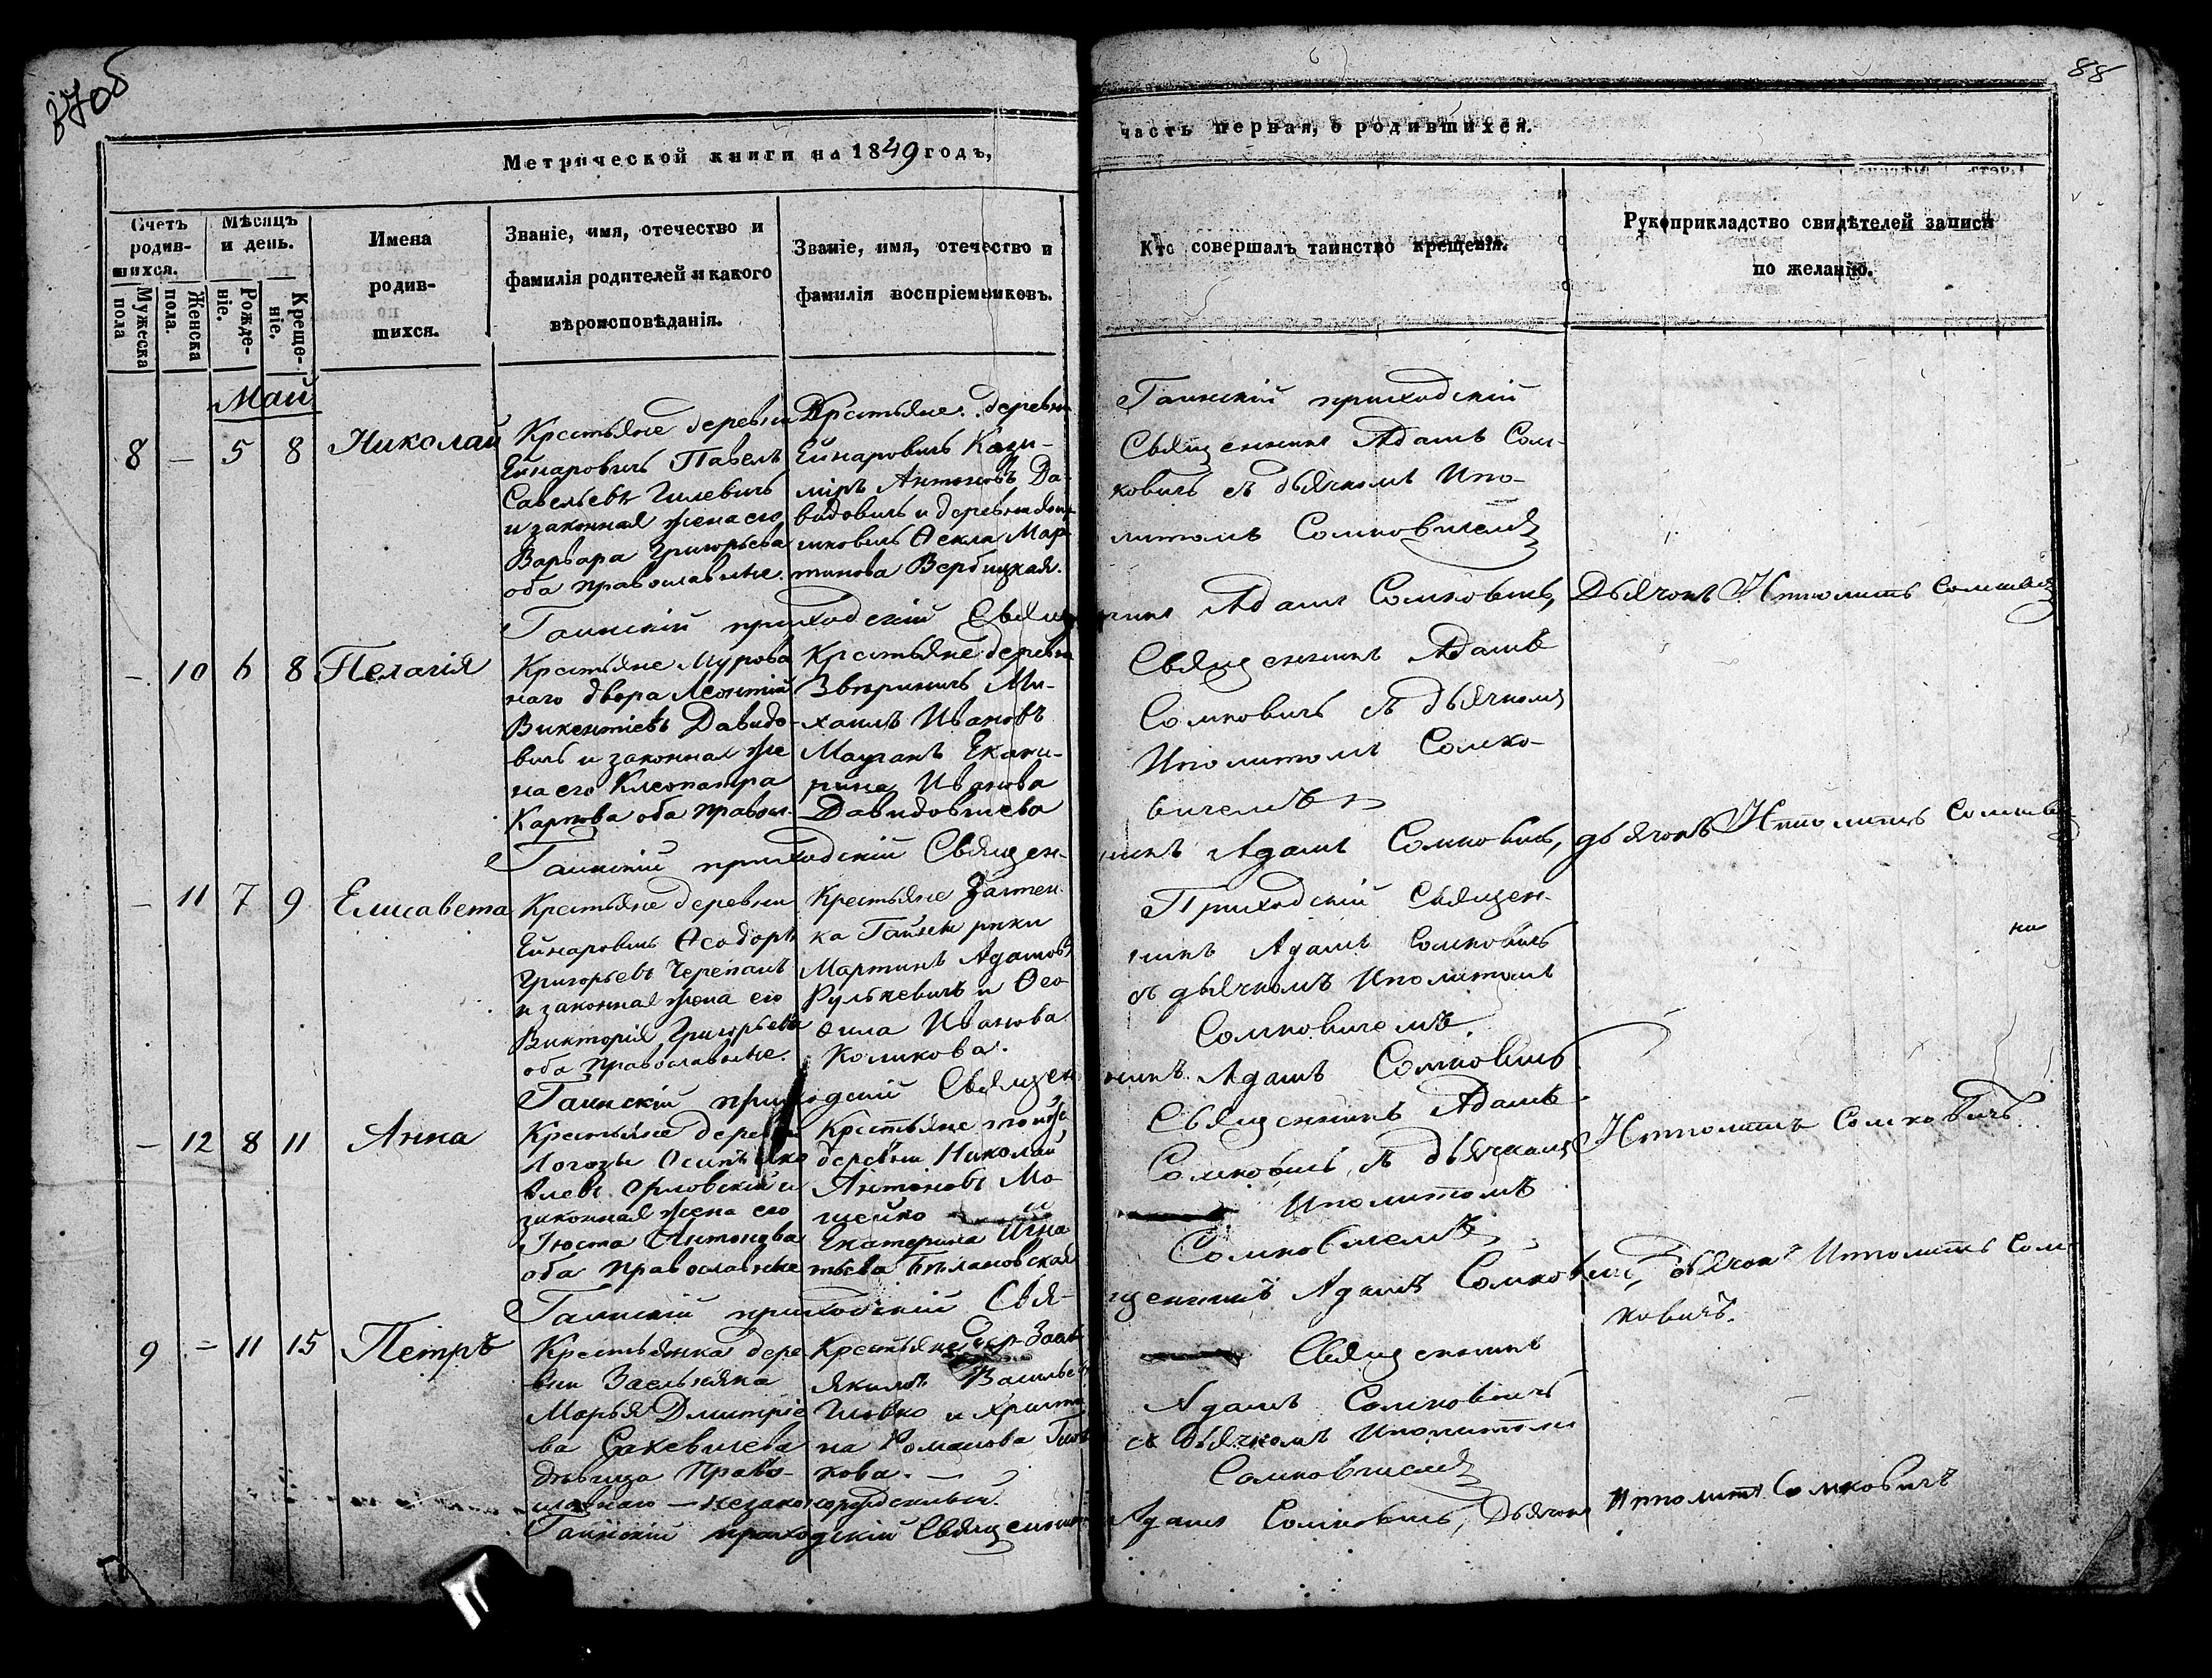 88
Метрической книги на 1849 годъ,
часть первая, о родившихся.
Счетъ родив-
шихся.
Мужеска пола
Женска пола.
Мѣсяцъ и день.
Рожде-
ніе.
Креще-
ніе.
Имена
родив-
шихся.
Званіе, имя, отечество и
фамилія родителей и какого
вѣроисповѣданія.
Званіе, имя, отечество и
фамилія воспріемниковъ.
Кто совершалъ таинство крещенія.
Рукоприкладство свидѣтелей записи
по желанію.
Май
8 — 5 8 Николай
Крестьяне деревни
Ейнаровичь Павелъ
Савельевъ Гилевичь
и законная жена его
Варвара Григорьева
оба православные.
Крестьяне деревни
Ейнаровичь Кази-
міръ Антоновъ Да-
видовичь и деревни
Ѳекла Мар-
тинова Вербицкая.
Гаинскій приходскій
Священникъ Адамъ Сом-
ковичь съ дьячкомъ Ипо-
литомъ Сомковичемъ
Гаинскій приходскій Священникъ Адамъ Сомковичь, Дьячокъ Ипполитъ Сомковичъ
— 10 6 8 Пелагія
Крестьяне Мурова
наго двора Леонтій
Викентіевъ Давидо-
вичь и законная же
на его Клеопатра
Карпова оба правосл.
Крестьяне деревни
Звѣриничь Ми-
хаилъ Ивановъ
Екате-
рина Иванова
Давидовичева
Священникъ Адамъ
Сомковичь съ дьячкомъ
Иполитомъ Сомко-
вичемъ
Гаинскій приходскій Священ-
никъ Адамъ Сомковичь, дьячокъ Ипполитъ Сомкович
— 11 7 9 Елисавета
Крестьяне деревни
Ейнаровичь Ѳеодоръ
Григорьевъ Черепанъ
и законная жена его
Викторія Григорьева
оба православные.
Крестьяне Застен-
ка
Мартинъ Адамовъ
Рулькевичъ и Ѳео
фила Иванова
Коликова.
Приходскій Священ-
никъ Адамъ Сомковичь
съ дьячкомъ Иполитомъ
Сомковичемъ.
Гаинскій приходскій Священ
никъ Адамъ Сомковичь
— 12 8 11 Анна
Крестьяне деревни
Логозы Осипъ Яко
влевъ Орловскій и
законная жена его
Юста Антонова
оба православные
Крестьяне тойже
деревни Николай
Антоновъ Мо
шейко и
Екатерина Игна
тьева Бѣлановская
Священникъ Адамъ
Сомковичь съ дьячкомъ
Иполитомъ
Сомковичемъ
Ипполитъ Сомковичъ.
Гаинскій приходскій Свя-
щенникъ Адамъ Сомковичь, дьячокъ Ипполитъ Сом-
ковичъ.
9 — 11 15 Петръ
Крестьянка дере
вни
Марья Дмитріе
ва Сакевичева
дѣвица Право-
славнаго — незаконорожденный.
Крестьяне дер.
Якимъ Василье
и Христи
на Романова
кова. —
Священникъ
Адамъ Сомковичь
съ дьячкомъ Иполитомъ
Сомковичемъ
Гаинскій приходскій Священникъ Адамъ Сомковичь, Дьячокъ Ипполитъ Сомковичъ